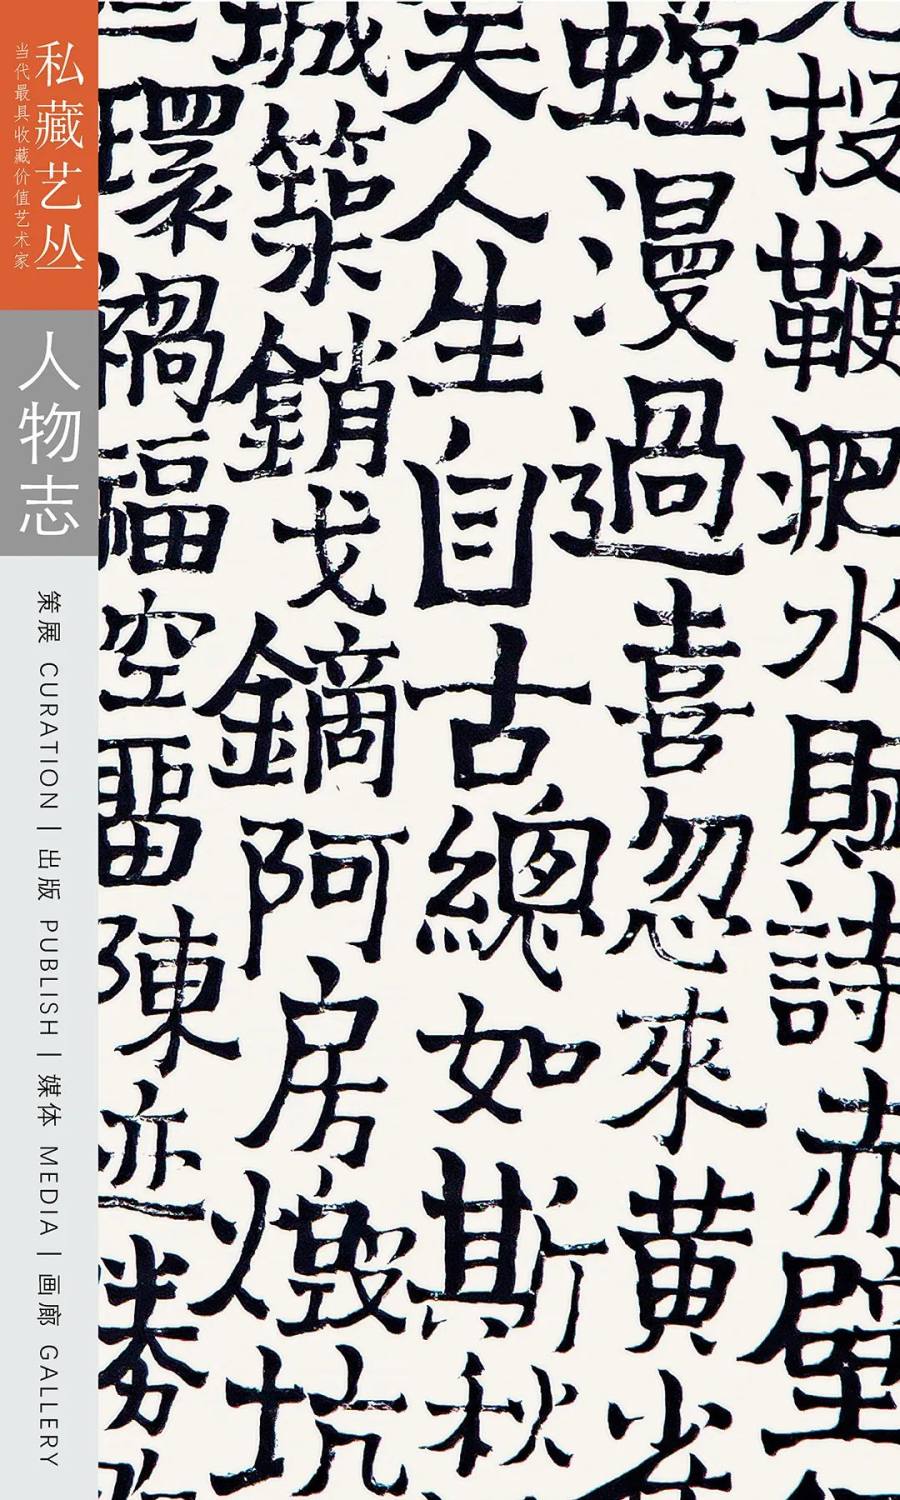 私藏艺丛
当代最具收藏价值艺术家
人物志
策展 CURATION | 出版 PUBLISH | 媒体 MEDIA | 画廊 GALLERY
投鞭淝水賦詩赤壁
螳漫過喜忽來黄
人生自古總如斯秋
城築銷戈鏑阿房燬坑
環禍福空畱陳迹勝